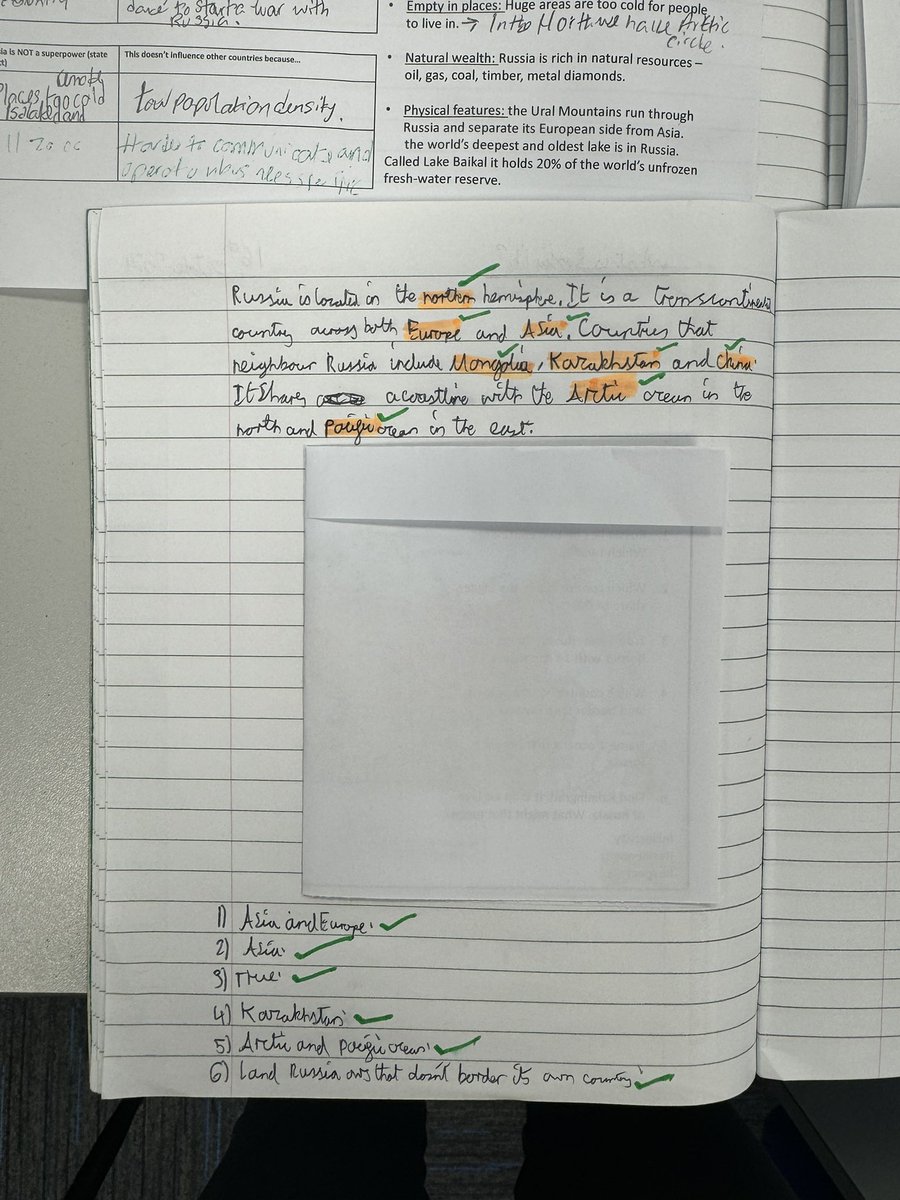 dare to start a war with
Russia.
ia is NOT a superpower (state
This doesn't influence other countries because...
places too cold
isolated and
low population density.
Harder to communicate and
• Empty in places: Huge areas are too cold for people
to live in. → In the North we have Arctic
circle.
• Natural wealth: Russia is rich in natural resources –
oil, gas, coal, timber, metal diamonds.
• Physical features: the Ural Mountains run through
Russia and separate its European side from Asia.
the world's deepest and oldest lake is in Russia.
Called Lake Baikal it holds 20% of the world's unfrozen
fresh-water reserve.
Russia is located in the northern hemisphere. It is a transcontinental
country across both Europe and Asia. Countries that
neighbour Russia include Mongolia, Kazakhstan and China.
It shares a coastline with the Arctic ocean in the
north and pacific ocean in the east.
1) Asia and Europe.
2) Asia.
3) True.
4) Kazakhstan.
5) Arctic and pacific ocean.
6) land Russia owns that doesn't border its own country.